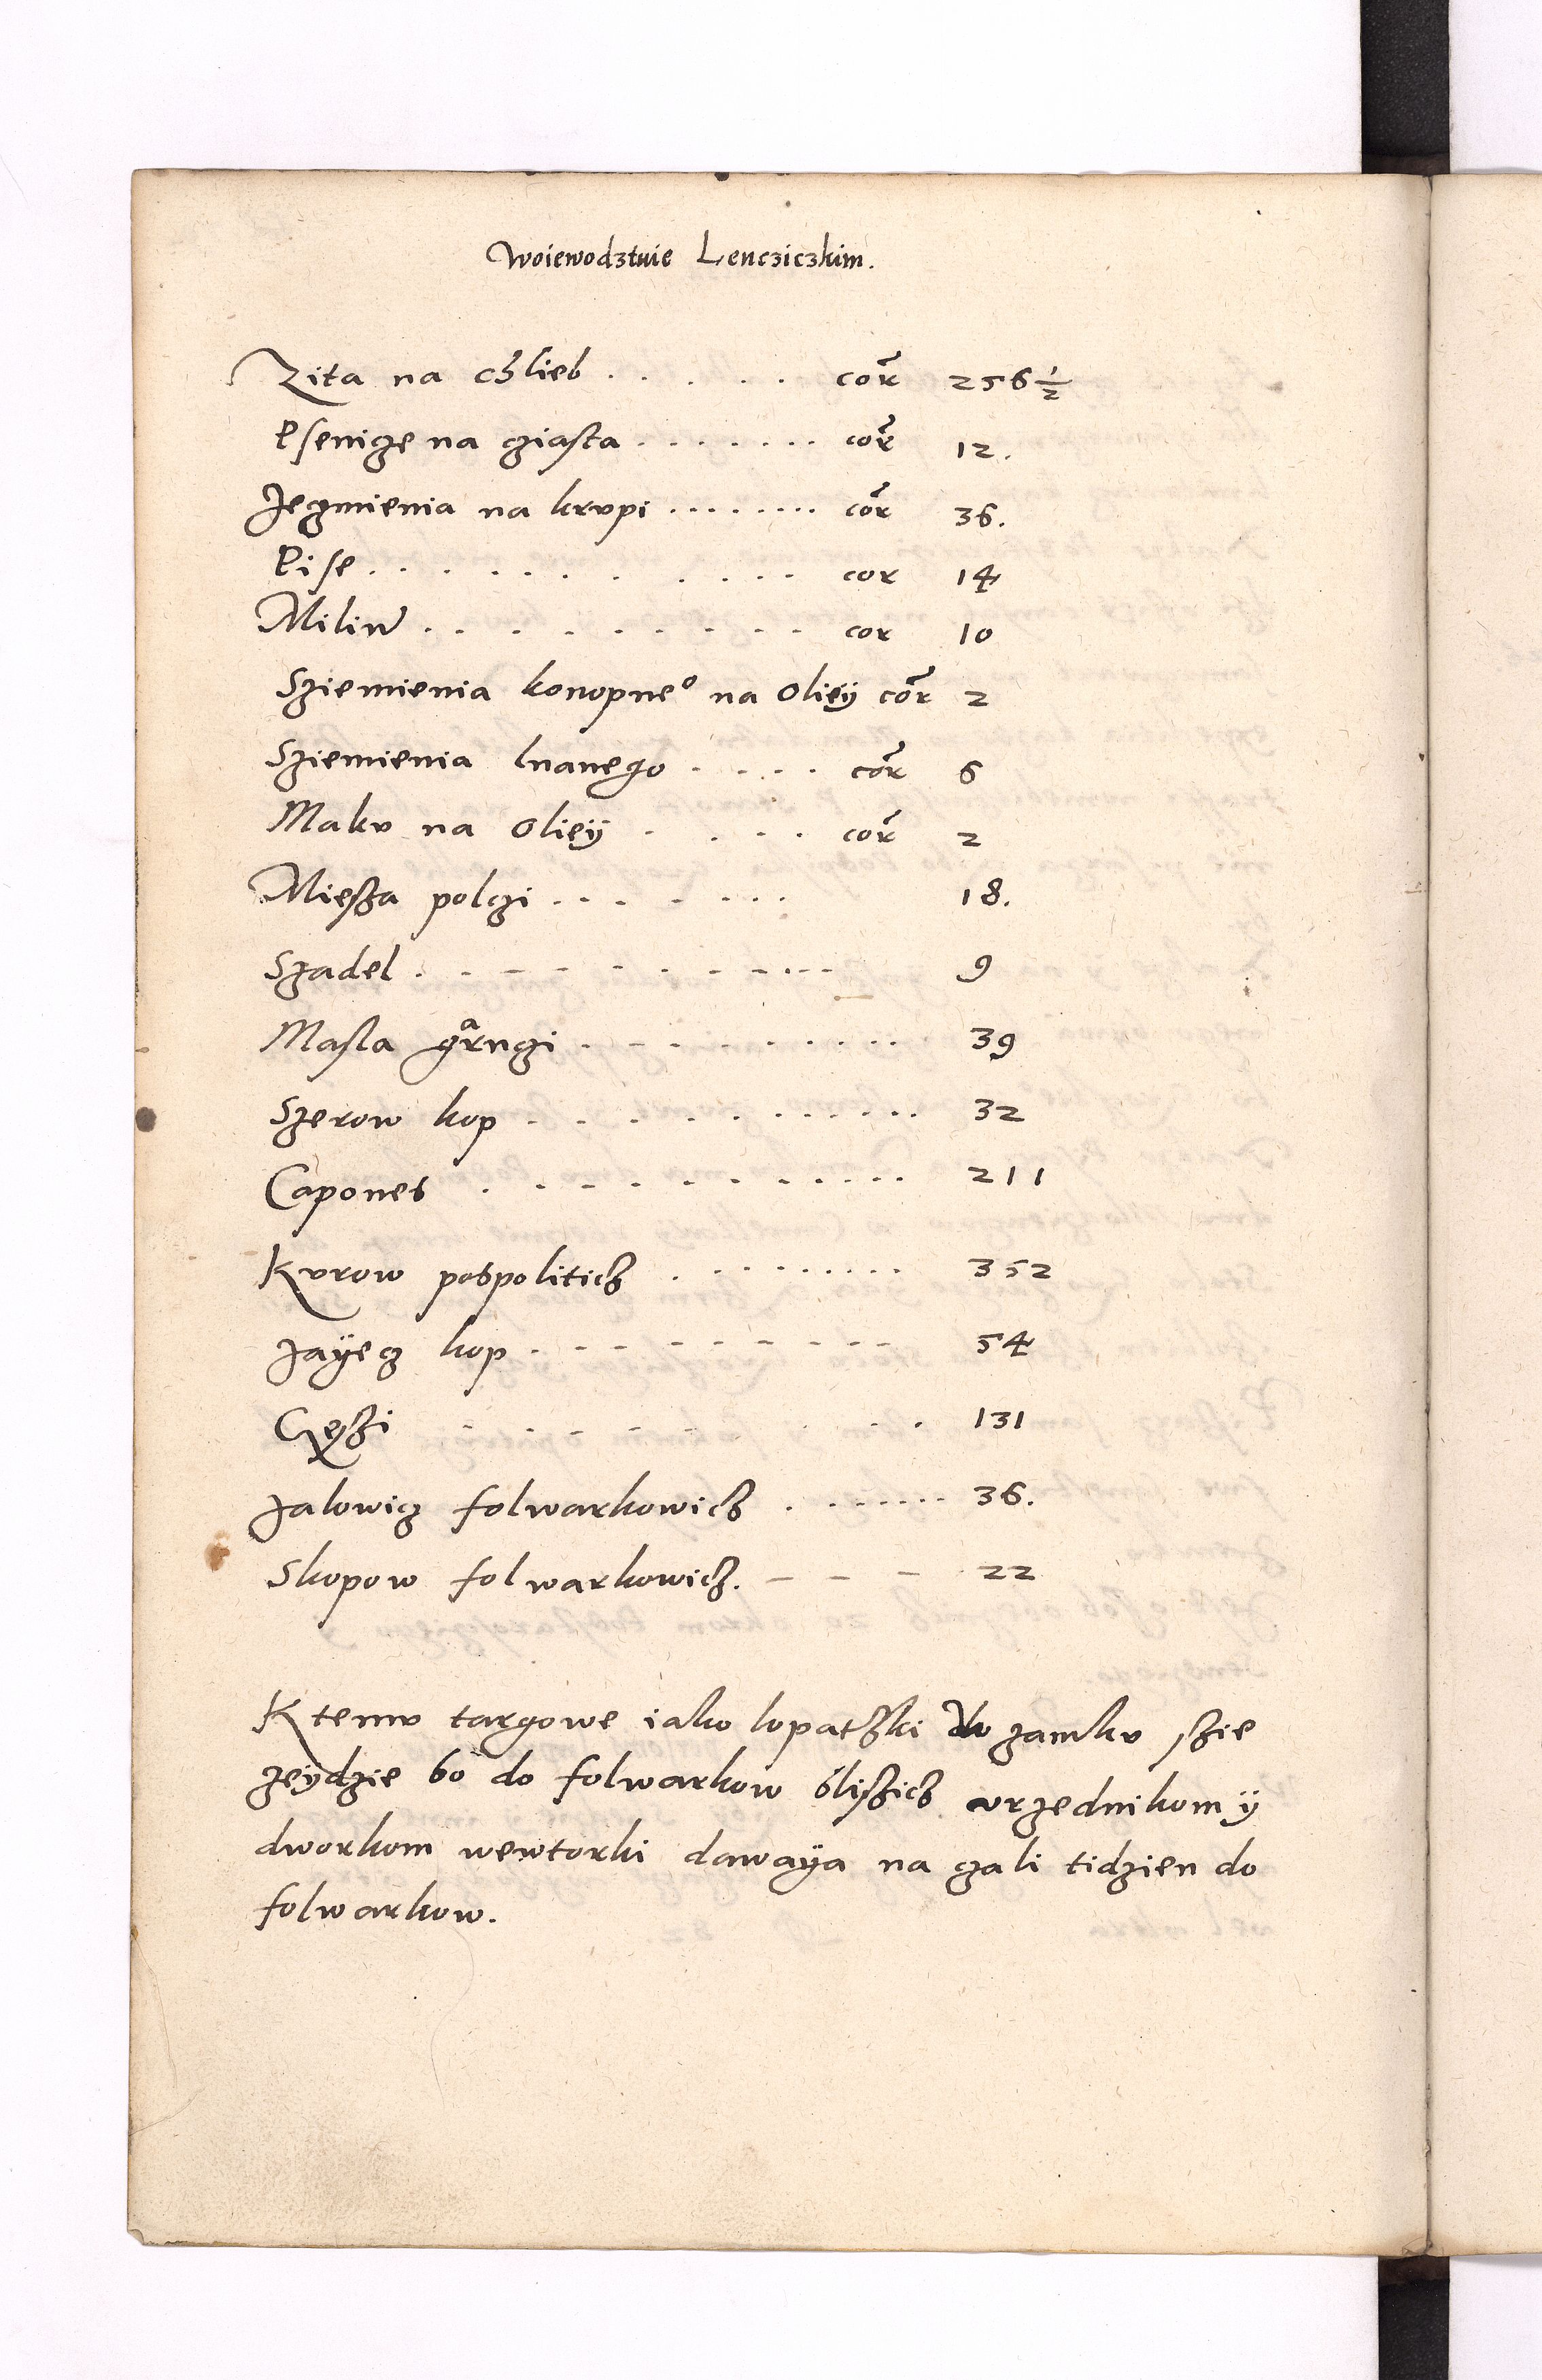 Woiewodztwie Lencziczkim.
Zita na chlieb . . . . . cor̃ 256 1/2
Psenicze na cziasta . . . . . . . . cor̃ 12.
Jeczmienia na krvpi . . . . . . . . cor̃ 36.
Pise . . . . . . . . . . . cor 14
Miliw . . . . . . . . . cor 10
Sziemienia konopneº na Olieÿ cor̃ 2
Sziemienia lnanego . . . . cor̃ 6
Makv na Olieÿ . . . . cor̃ 2
Miesza polczi . . . . . . . . 18.
Szadel . . . . . . . . . . . 9
Masla garnczi . . . . . . . . . . 39
Szerow kop . . . . . . . . . . 32
Capones . . . . . . . . . . . 211
Kvrow pospolitich . . . . . . . . . 352
Jaÿecz kop . . . . . . . . . 54
Gęszi . . . . . . . . . 131
Jalowicz folwarkowich . . . . . . . . 36.
Skopow folwarkowich. – – – . 22
K temv targowe iako lopatzki do zamkv szie
zeÿdzie bo do folwarkow bliszich vrzednikom ÿ
dworkom wewtorki dawaÿa na czali tidzien do
folwarkow.